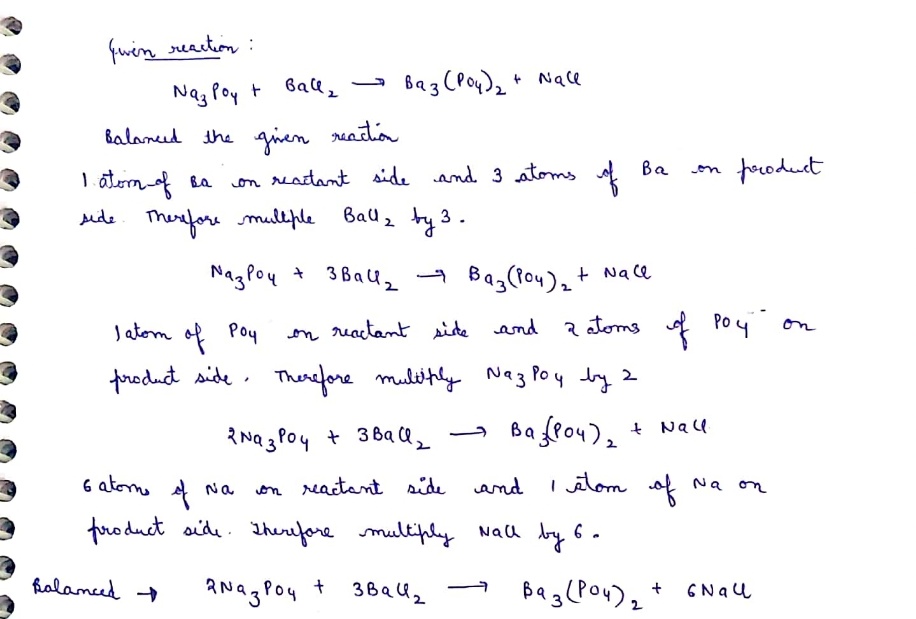 Given reaction :
Na₃PO₄ + BaCl₂ → Ba₃(PO₄)₂ + NaCl
Balanced the given reaction
1 atom of Ba on reactant side and 3 atoms of Ba on product
side. Therefore multiple BaCl₂ by 3.
Na₃PO₄ + 3BaCl₂ → Ba₃(PO₄)₂ + NaCl
1 atom of PO₄ on reactant side and 2 atoms of PO₄⁻⁻ on
product side. Therefore multiply Na₃PO₄ by 2
2Na₃PO₄ + 3BaCl₂ → Ba₃(PO₄)₂ + NaCl
6 atoms of Na on reactant side and 1 atom of Na on
product side. Therefore multiply NaCl by 6.
Balanced → 2Na₃PO₄ + 3BaCl₂ → Ba₃(PO₄)₂ + 6NaCl